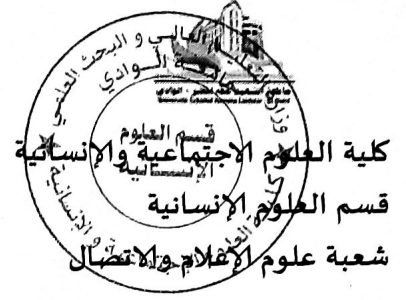 وزارة التعليم العالي و البحث العلمي
جامعة الوادي
قسم العلوم
الإنسانية
كلية العلوم الاجتماعية والإنسانية
قسم العلوم الإنسانية
شعبة علوم الإعلام والاتصال